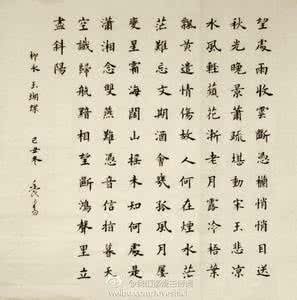 望處雨收雲斷憑欄悄悄目送
秋光晚景蕭疏堪動宋玉悲涼
水風輕蘋花漸老月露冷梧葉
飄黃遣情傷故人何在煙水茫
茫難忘文期酒會幾孤風月屢
變星霜海闊山遙未知何處是
瀟湘念雙燕難憑音信指暮天
空識歸航黯相望斷鴻聲里立
盡斜陽
柳永玉蝴蝶 己丑冬